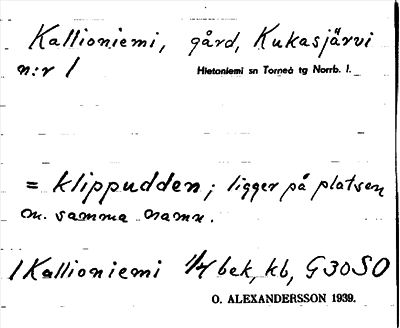 Kallioniemi, gård, Kukasjärvi
n:r 1 Hietaniemi sn Torneå tg Norrb. l.
= klippudden; ligger på platsen
m. samma namn.
1 Kallioniemi 1/4 bek, kb, G30SO
O. ALEXANDERSSON 1939.